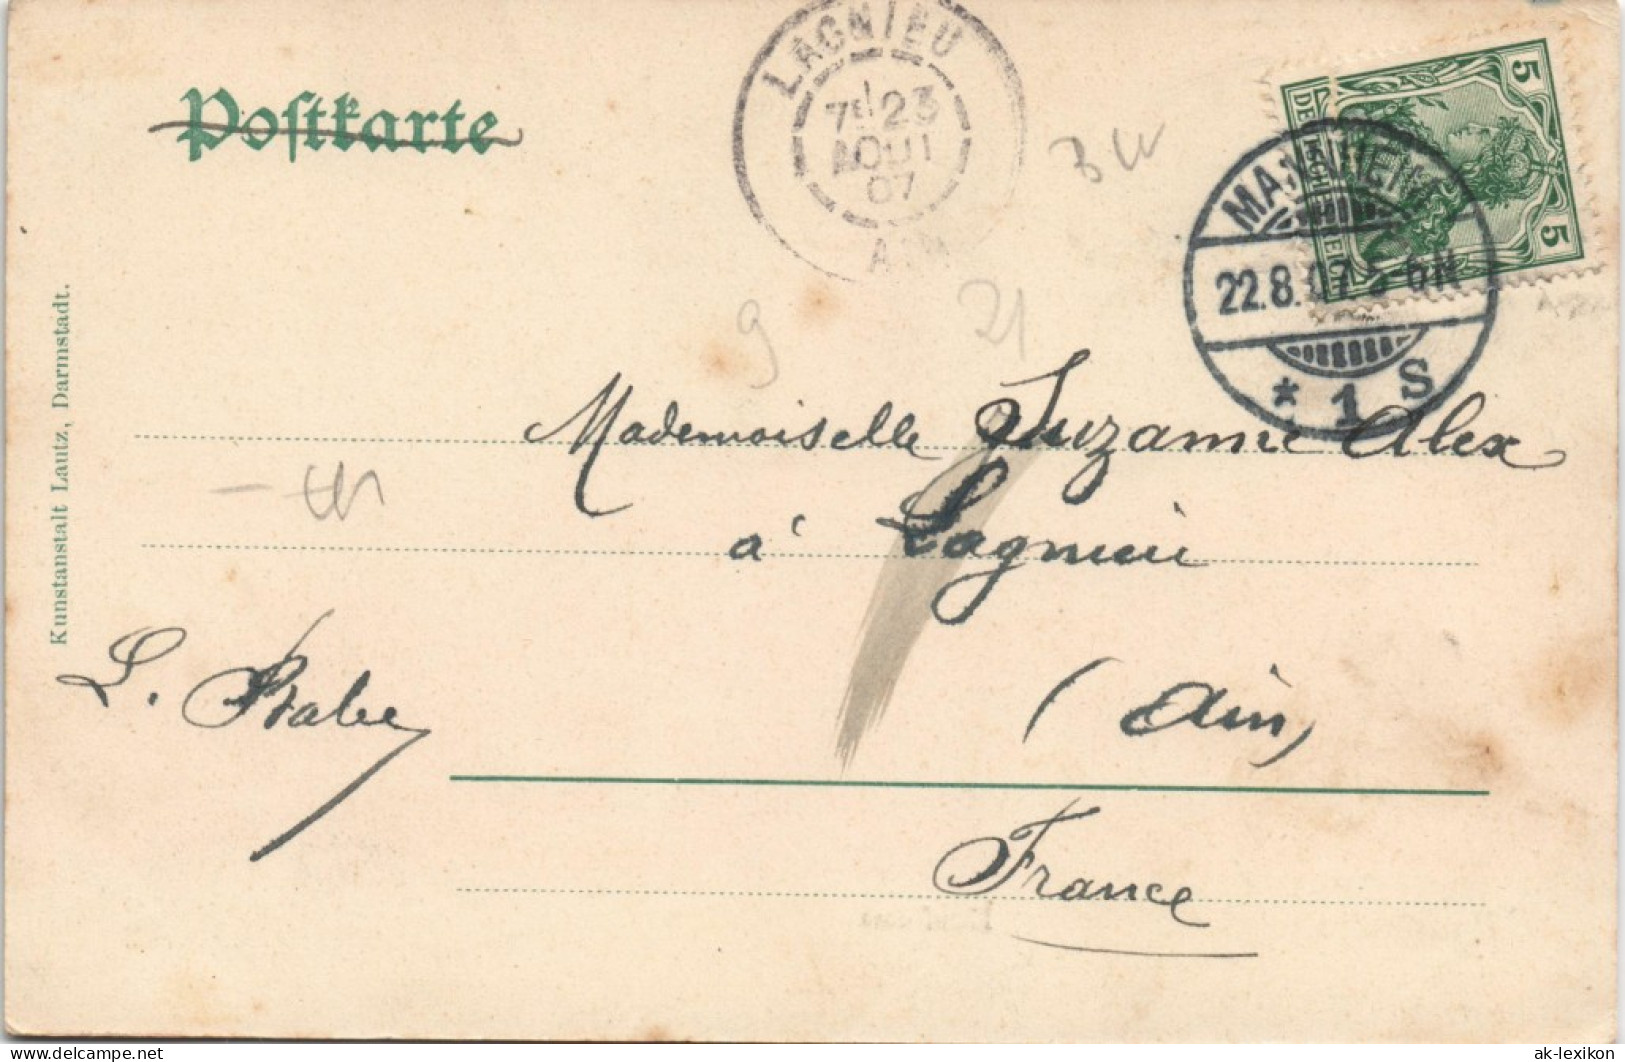 Postkarte
LAGNIEU
7E 23
AOUT
07
AIN
BW
5
5
DEUTSCHES REICH
MANNHEIM
22.8.07. 5-6N
* 1 S
9
21
Kunstanstalt Lautz, Darmstadt.
Mademoiselle Suzanne Alex
à Lagnieu
(Ain)
France
L.
ak-lexikon
www.delcampe.net